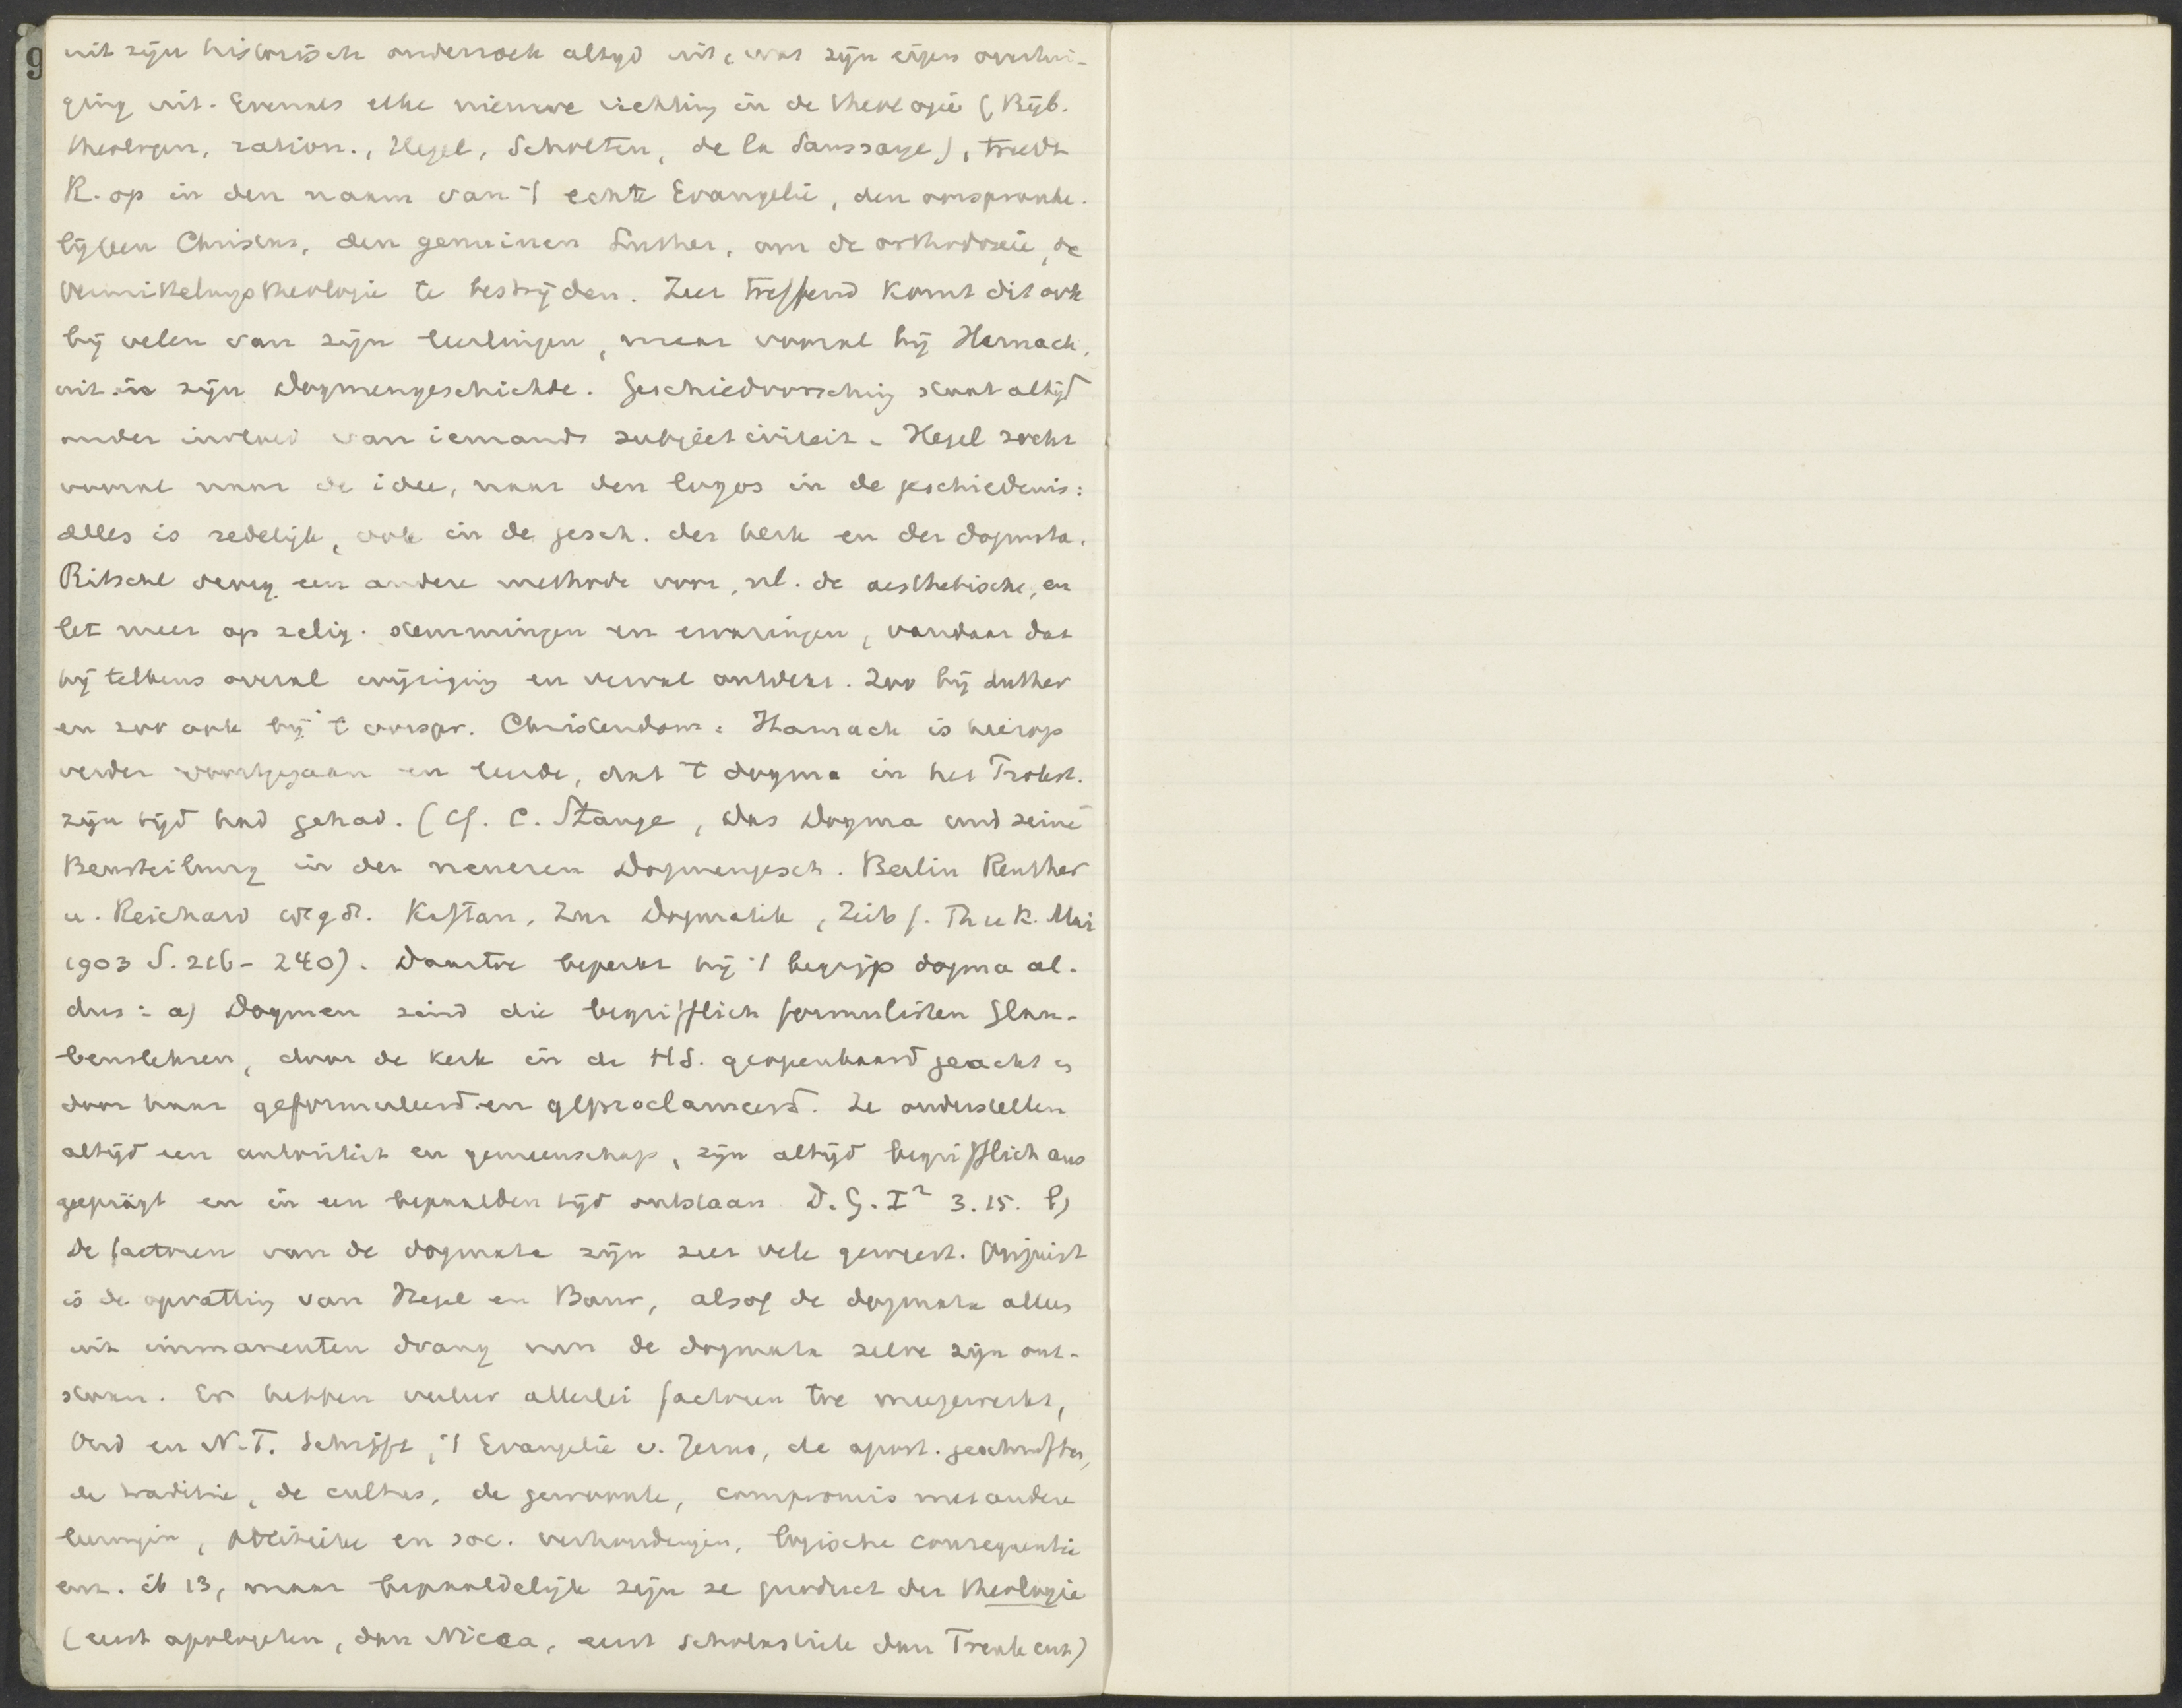 9
uit zijn historisch onderzoek altijd uit, wat zijn eigen overtui-
ging uit. Evenals elke nieuwe richting in de theologie (Bijb.
theologen, ration., Hegel, Scholten, de la Saussaye), treedt
R. op in den naam van 't echte Evangelie, den oorspronke-
lijken Christus, den genuinen Luther, om de orthodoxie, de
Vermittelungstheologie te bestrijden. Zeer treffend komt dit ook
bij velen van zijn leerlingen, maar vooral bij Harnack,
uit in zijn Dogmengeschichte. Geschiedvorsching staat altijd
onder invloed van iemands subjectiviteit. Hegel zocht
vooral naar de idee, naar den logos in de geschiedenis:
alles is redelijk, ook in de gesch. der kerk en der dogmata.
Ritschl een andere methode voor, nl. de aesthetische, en
let meer op relig. stemmingen en ervaringen, vandaar dat
hij telkens overal wijziging en verval ontdekt. Zoo bij Luther
en zoo ook bij 't oorspr. Christendom. Harnack is hierop
verder voortgegaan en leerde, dat 't dogma in het Protest.
zijn tijd had gehad. (Cf. C. Stange, Das Dogma und seine
Beurteilung in der neueren Dogmengesch. Berlin Reuther
u. Reichard Kaftan, Zur Dogmatik, Zeits f. Th u K. Mai
1903 S. 216-240). Daartoe beperkt hij 't begrip dogma al-
dus: a) Dogmen sind die begrifflich formulirten Glau-
benslehren, door de kerk in de H.S. geopenbaard geacht en
door haar geformuleerd en geproclameerd. Ze onderstellen
altijd een autoriteit en gemeenschap, zijn altijd begrifflich aus
geprägt en in een bepaalden tijd ontstaan D.G. I² 3.15. b)
De factoren van de dogmata zijn zeer vele geweest. Onjuist
is de opvatting van Hegel en Baur, alsof de dogmata alles
uit immanenten drang van de dogmata zelve zijn ont-
staan. Er hebben veeleer allerlei factoren toe meegewerkt,
Oud en N.T. Schrift, 't Evangelie v. Jezus, de apost. geschriften,
de traditie, de cultus, de gewoonte, compromis met andere
leeringen, politieke en soc. verhoudingen, logische consequentie
enz. ib 13, maar bepaaldelijk zijn ze product der theologie
(eerst apologeten, dan Nicea, eerst scholastiek dan Trente enz)